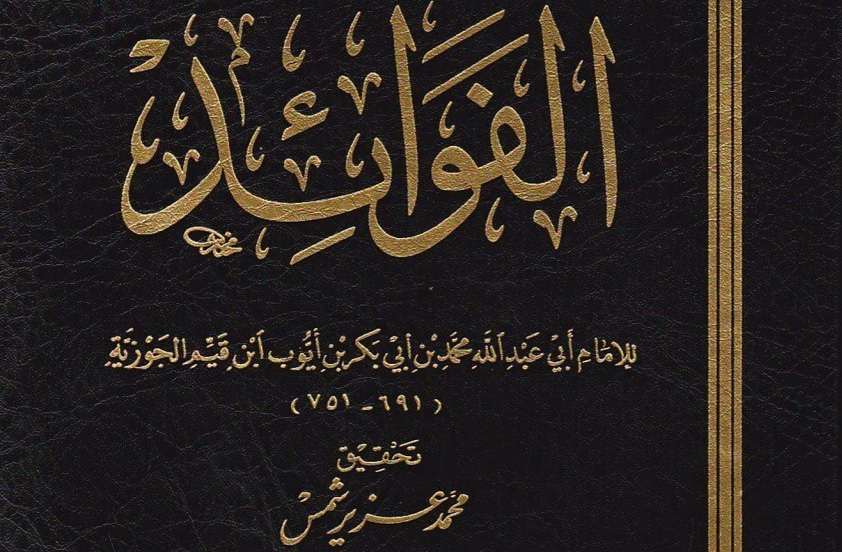 الفَوَائِد
للإمَامِ أَبِي عَبْدِ اللَّهِ مُحَمَّد بْنِ أَبِي بَكْرِ بْنِ أَيُّوب ابْنِ قَيِّمِ الجَوْزِيَّةِ
(٦٩١ - ٧٥١)
تَحْقِيْق
مُحَمَّد عُزَيْر شَمْس